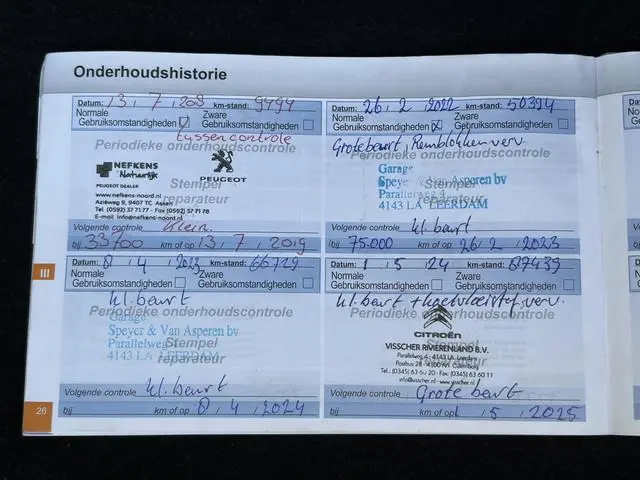 Onderhoudshistorie
Datum: 13 , 7 , 2018 km-stand: 9494
Normale Gebruiksomstandigheden
Zware Gebruiksomstandigheden
tussencontrole
Periodieke onderhoudscontrole
NEFKENS
Natuurlijk
PEUGEOT
PEUGEOT DEALER
www.nefkens-noord.nl
Aziëweg 9, 9407 TC Assen
Tel. (0592) 37 71 77 - Fax (0592) 37 71 78
E-mail info@nefkens-noord.nl
Stempel
reparateur
Volgende controle klein.
bij km of op 13 , 7 , 2019
Datum: 26 , 2 , 2022 km-stand: 50394
Normale Gebruiksomstandigheden
Zware Gebruiksomstandigheden
Grote beurt, Remblokken verv.
Periodieke onderhoudscontrole
Garage
Speyer & Van Asperen bv
Parallelweg 4
4143 LA LEERDAM
Stempel
reparateur
Volgende controle kl. beurt
bij 75.000 km of op 26 , 2 , 2023
III
Datum: 4 , 2023 km-stand: 66729
Normale Gebruiksomstandigheden
Zware Gebruiksomstandigheden
kl. beurt
Periodieke onderhoudscontrole
Garage
Speyer & Van Asperen bv
Parallelweg
4143 LA LEERDAM
Stempel
reparateur
Volgende controle kl. beurt
bij km of op 4 , 2024
Datum: 1 , 5 , 24 km-stand: 87433
Normale Gebruiksomstandigheden
Zware Gebruiksomstandigheden
kl. beurt + koelvloeistof verv.
Periodieke onderhoudscontrole
CITROËN
VISSCHER RIVIERENLAND B.V.
Parallelweg 4 - 4143 LA Leerdam
Postbus 28 - 4100 AA Culemborg
Tel.: (0345) 63 62 20 - Fax: (0345) 63 60 11
info@visscher.nl - www.visscher.nl
Stempel
reparateur
Volgende controle Grote beurt
bij km of op 1 , 5 , 2025
26